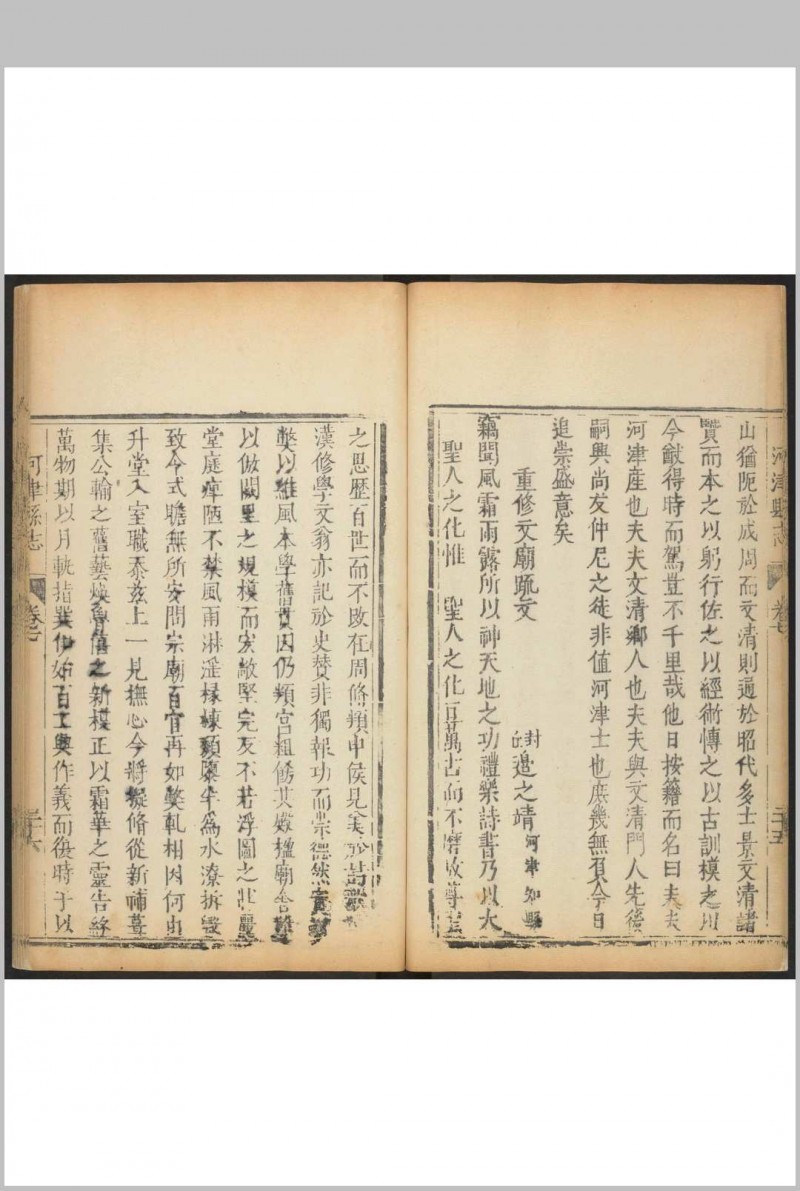 河津縣志
卷七
二十五
山猶阨於成周而文清則遇於昭代多士景文清諸
賢而本之以躬行佐之以經術慱之以古訓模之以
今猷得時而駕豈不千里哉他日按籍而名曰夫夫
河津產也夫夫文清鄉人也夫夫與文清門人先後
嗣興尚友仲尼之徒非值河津士也庶幾無負今日
追崇盛意矣
重修文廟疏文
封丘邊之靖河津知縣
竊聞風霜雨露所以神天地之功禮樂詩書乃以大
聖人之化惟 聖人之化百萬古而不磨故尊
之思歷百世而不改在周脩頖申侯見美於
漢修學文翁亦記於史贊非獨報功而崇德然
獎以維風本學舊貫因仍頖宮粗脩其楹廟舍
以倣闕里之規模而宏敞堅完友不若浮圖之壯
堂庭痺陋不禁風雨淋漓椽棟頹隳半為水潦拆毀
致令式瞻無所安問宗廟百官再如獎軋相因何由
升堂入室職忝茲上一見撫心今將擬脩從新補葺
集公輸之舊藝煥魯僖之新模正以霜華之靈告終
萬物期以月軌指業伊始百工與作義而後時子以
河津縣志
卷七
二十六